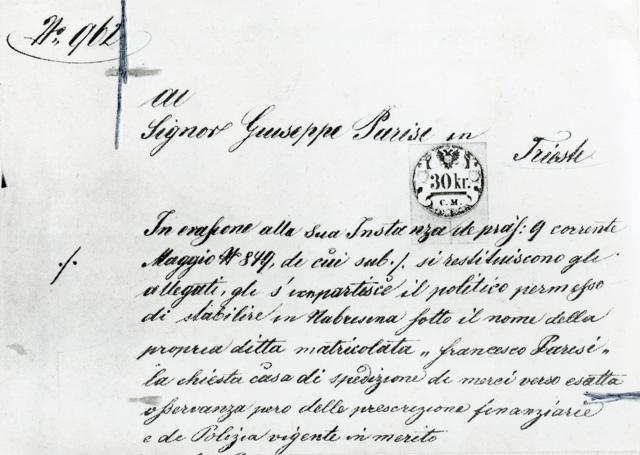 No. 962
Al
Signor Giuseppe Parisi in
Trieste.
30 kr.
C. M.
In evasione alla sua Instanza de präs: 9 corrente
./.
Maggio No 849, di cui sub ./. si restituiscono gli
allegati, gli s'impartisce il politico permesso
di stabilire in Nabresina sotto il nome della
propria ditta matricolata „ Francesco Parisi „
la chiesta casa di spedizione di merci verso esatta
osservanza pero delle prescrizione finanziarie
e di Polizia vigente in merito